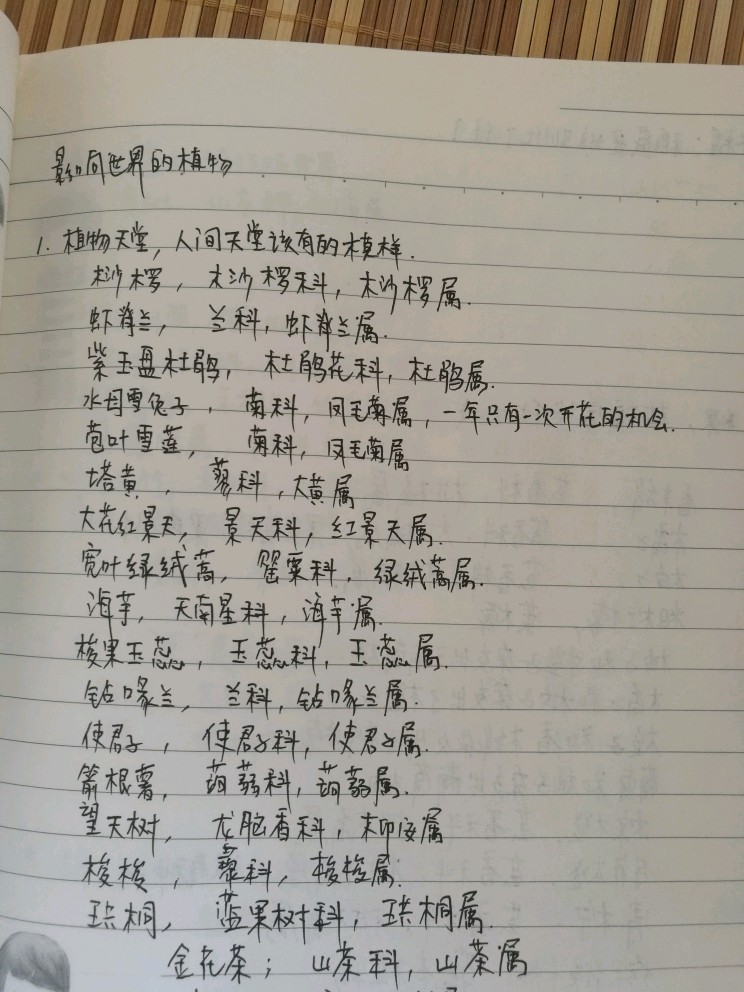 影响世界的植物
1. 植物天堂，人间天堂该有的模样.
桫椤，桫椤科，桫椤属.
虾脊兰，兰科，虾脊兰属.
紫玉盘杜鹃，杜鹃花科，杜鹃属.
水母雪兔子，菊科，凤毛菊属，一年只有一次开花的机会.
苞叶雪莲，菊科，凤毛菊属
塔黄，蓼科，大黄属
大花红景天，景天科，红景天属.
宽叶绿绒蒿，罂粟科，绿绒蒿属.
海芋，天南星科，海芋属.
梭果玉蕊，玉蕊科，玉蕊属.
钻喙兰，兰科，钻喙兰属.
使君子，使君子科，使君子属.
箭根薯，蒟蒻科，蒟蒻属.
望天树，龙脑香科，柳安属
梭梭，藜科，梭梭属.
珙桐，蓝果树科，珙桐属.
金花茶；山茶科，山茶属